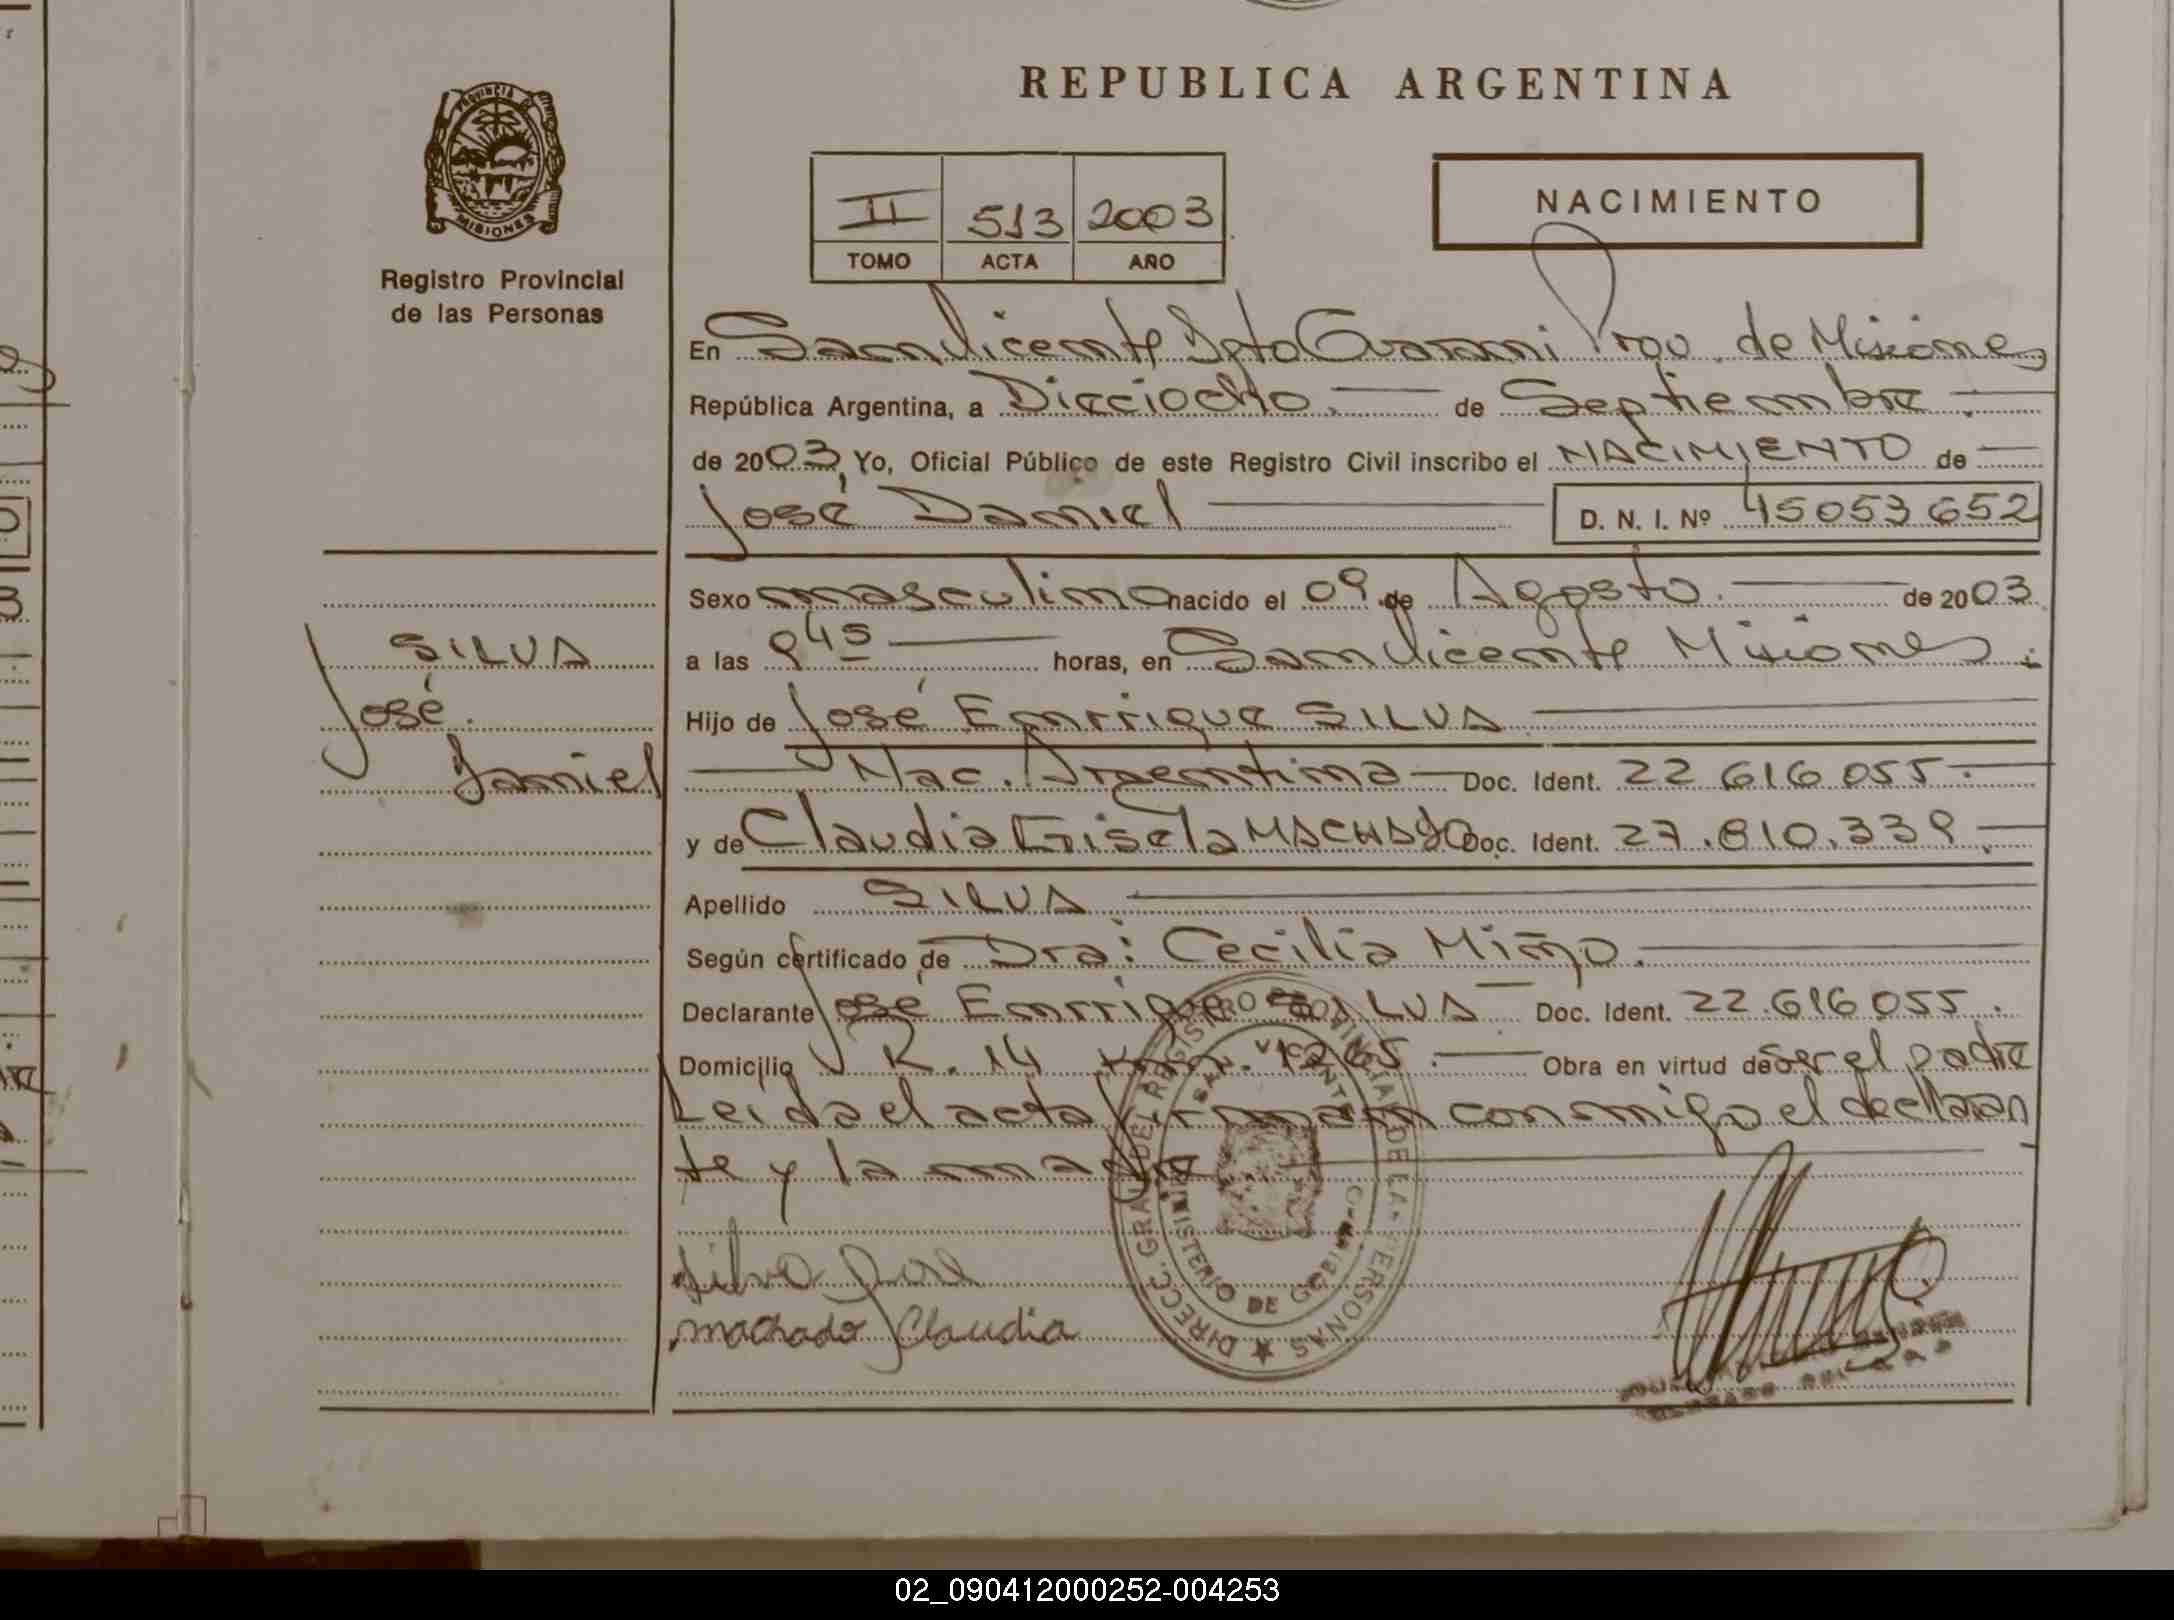 REPUBLICA ARGENTINA
PROVINCIA DE
MISIONES
Registro Provincial
de las Personas
II 513 2003
TOMO ACTA AÑO
NACIMIENTO
En San Vicente Dpto Guaraní Prov. de Misiones
República Argentina, a Dieciocho. de Septiembre.
de 2003, Yo, Oficial Público de este Registro Civil inscribo el NACIMIENTO de
José Daniel D. N. I. Nº 45053652
Sexo masculino nacido el 09 de Agosto. de 2003.
SILVA
José.
Daniel
a las 9 45 horas, en San Vicente Misiones.
Hijo de José Enrrique SILVA
Nac. Argentina Doc. Ident. 22.616.055.
y de Claudia Gisela MACHADO Doc. Ident. 27.810.339.
Apellido SILVA
Según certificado de Dra: Cecilia Miño.
Declarante José Enrrique SILVA Doc. Ident. 22.616.055.
Domicilio R. 14 km. 1265. Obra en virtud de Ser el padre
Leida el acta firman conmigo el declaran
te y la madre
Silva José
machado Claudia
DIRECC. GRAL. DEL REGISTRO PROVINCIAL DE LAS PERSONAS
SAN VICENTE
MINISTERIO DE GOBIERNO
02_090412000252-004253